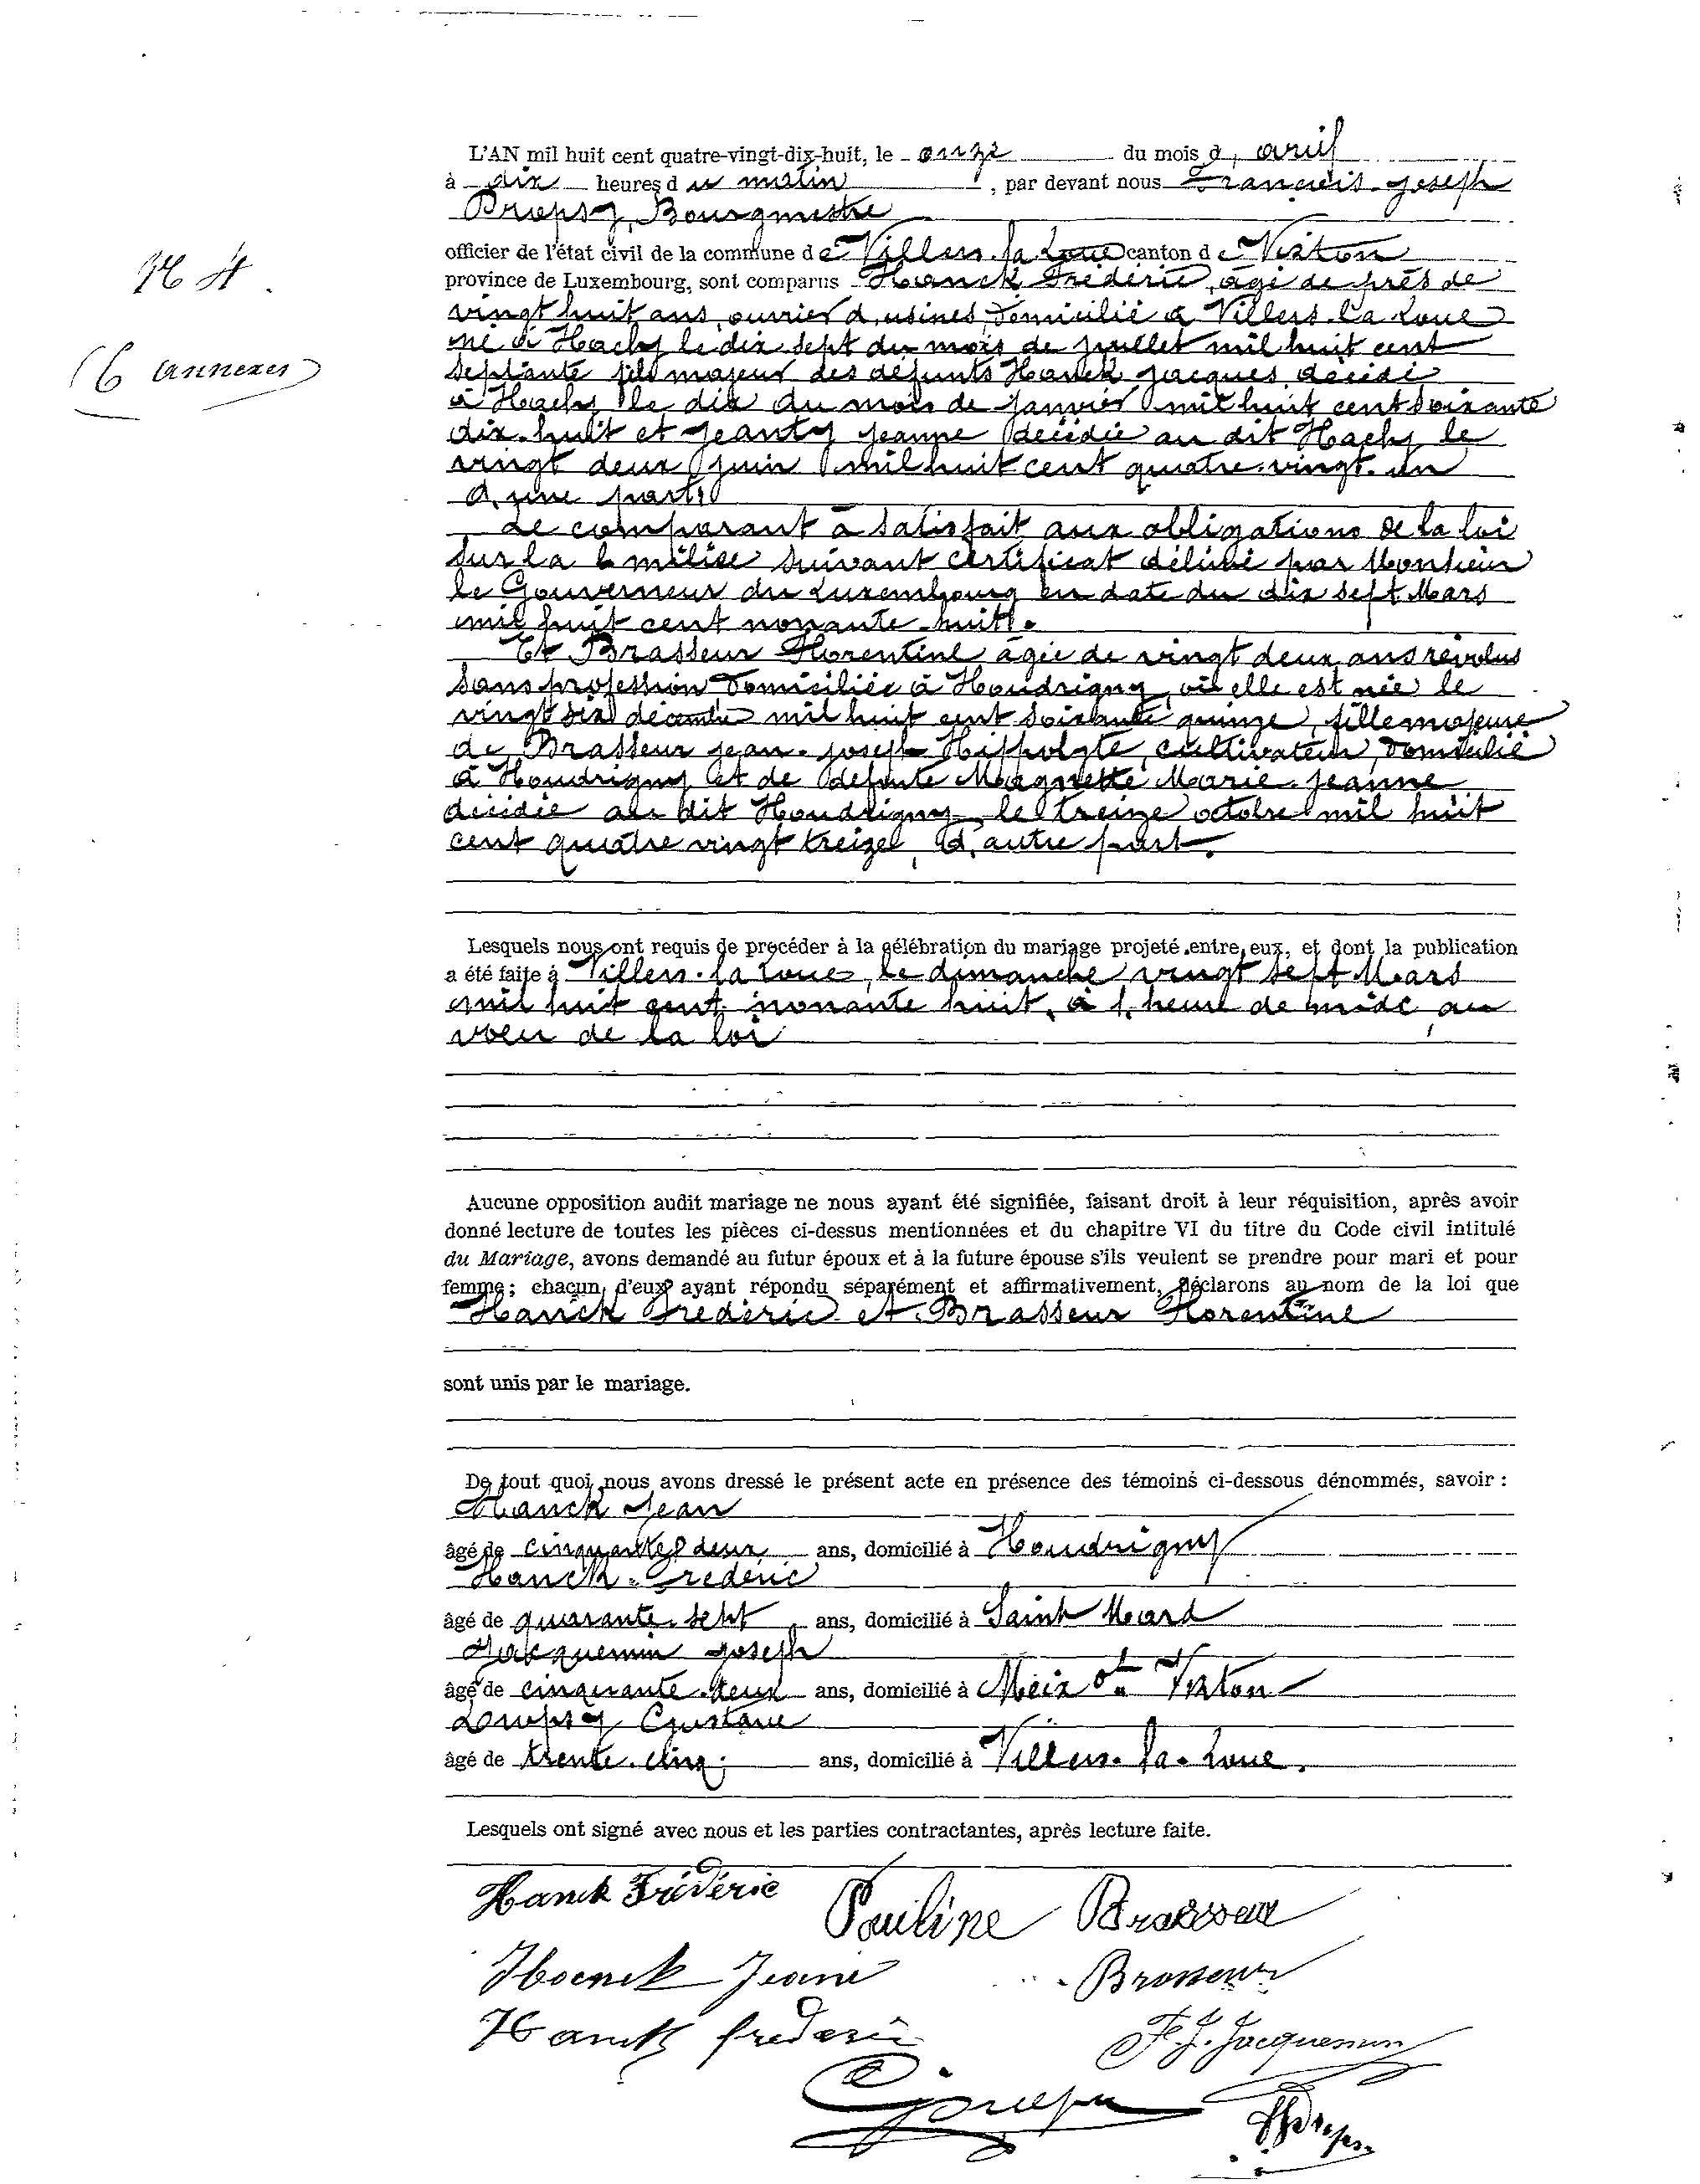 L'AN mil huit cent quatre-vingt-dix-huit, le onze du mois d, avril
à dix heures du matin, par devant nous François Joseph
Dropsy, Bourgmestre
officier de l'état civil de la commune de Villers-la-Loue canton de Virton
province de Luxembourg, sont comparus Hanck Frédéric, âgé de près de
vingt huit ans, ouvrier d'usines, domicilié à Villers-la-Loue
né à Hachy le dix sept du mois de juillet mil huit cent
septante fils majeur des défunts Hanck Jacques, décédé
à Hachy le dix du mois de janvier mil huit cent soixante
dix-huit et Jeanty Jeanne décédée au dit Hachy le
vingt deux juin mil huit cent quatre-vingt-un
d'une part.
Le comparant à satisfait aux obligations de la loi
sur la milice suivant certificat délivré par Monsieur
le Gouverneur du Luxembourg en date du dix sept Mars
mil huit cent nonante-huit.
Et Brasseur Florentine âgée de vingt deux ans révolus
sans profession domiciliée à Houdrigny, où elle est née le
vingt six décembre mil huit cent soixante quinze, fille majeure
de Brasseur Jean-Joseph Hippolyte, cultivateur, domicilié
à Houdrigny et de défunte Magnette Marie-Jeanne
décédée au dit Houdrigny, le treize octobre mil huit
cent quatre vingt treize, d'autre part.
Lesquels nous ont requis de procéder à la célébration du mariage projeté entre eux, et dont la publication
a été faite à Villers-la-Loue, le dimanche vingt sept Mars
mil huit cent nonante huit, à 1 heure de midi, au
voeu de la loi
Aucune opposition audit mariage ne nous ayant été signifiée, faisant droit à leur réquisition, après avoir
donné lecture de toutes les pièces ci-dessus mentionnées et du chapitre VI du titre du Code civil intitulé
du Mariage, avons demandé au futur époux et à la future épouse s'ils veulent se prendre pour mari et pour
femme; chacun d'eux ayant répondu séparément et affirmativement, déclarons au nom de la loi que
Hanck Frédéric et Brasseur Florentine
sont unis par le mariage.
De tout quoi nous avons dressé le présent acte en présence des témoins ci-dessous dénommés, savoir :
Hanck Jean
âgé de cinquante deux ans, domicilié à Houdrigny
Hanck Frédéric
âgé de quarante-sept ans, domicilié à Saint Mard
Jacquemin Joseph
âgé de cinquante-deux ans, domicilié à Meix dt Virton
Dropsy Gustave
âgé de trente-cinq ans, domicilié à Villers-la-Loue.
Lesquels ont signé avec nous et les parties contractantes, après lecture faite.
Hanck Frédéric
Pauline Brasseur
Hanck Jean
Brasseur
Hanck frederic
F. J. Jacquemin
N 4
(6 annexes)